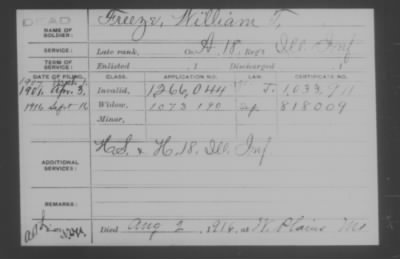 DEAD
NAME OF SOLDIER: Freeze, William T.
SERVICE: Late rank, Co. A, 18, Reg't Ill. Inf
TERM OF SERVICE: Enlisted , 1 Discharged , 1
DATE OF FILING. CLASS. APPLICATION NO. LAW. CERTIFICATE NO.
1901, Apr. 3, Invalid, 1266,044 J. 1,033,711
1916 Sept 16 Widow, 1073190 818009
Minor,
ADDITIONAL SERVICES: H.S. & H, 18, Ill. Inf
REMARKS:
Died Aug 2, 1916, at W. Plains Mo